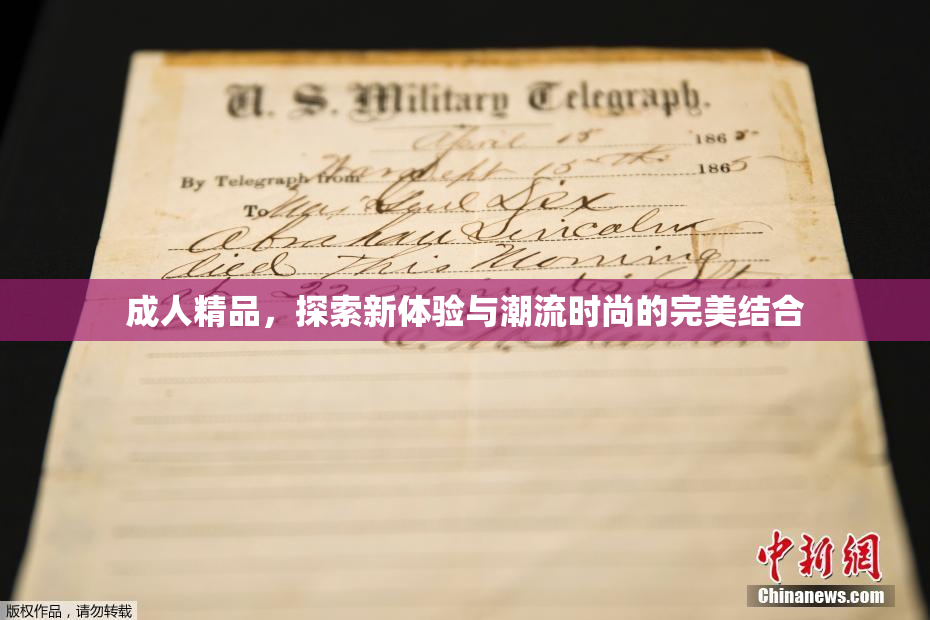 U. S. Military Telegraph.
April 15 1865
By Telegraph from War Dept 15th 1865
To Maj Genl Dix
Abraham Lincoln
died This Morning
at 22 minutes after
成人精品，探索新体验与潮流时尚的完美结合
E. M. Stanton
中新网
Chinanews.com
版权作品，请勿转载